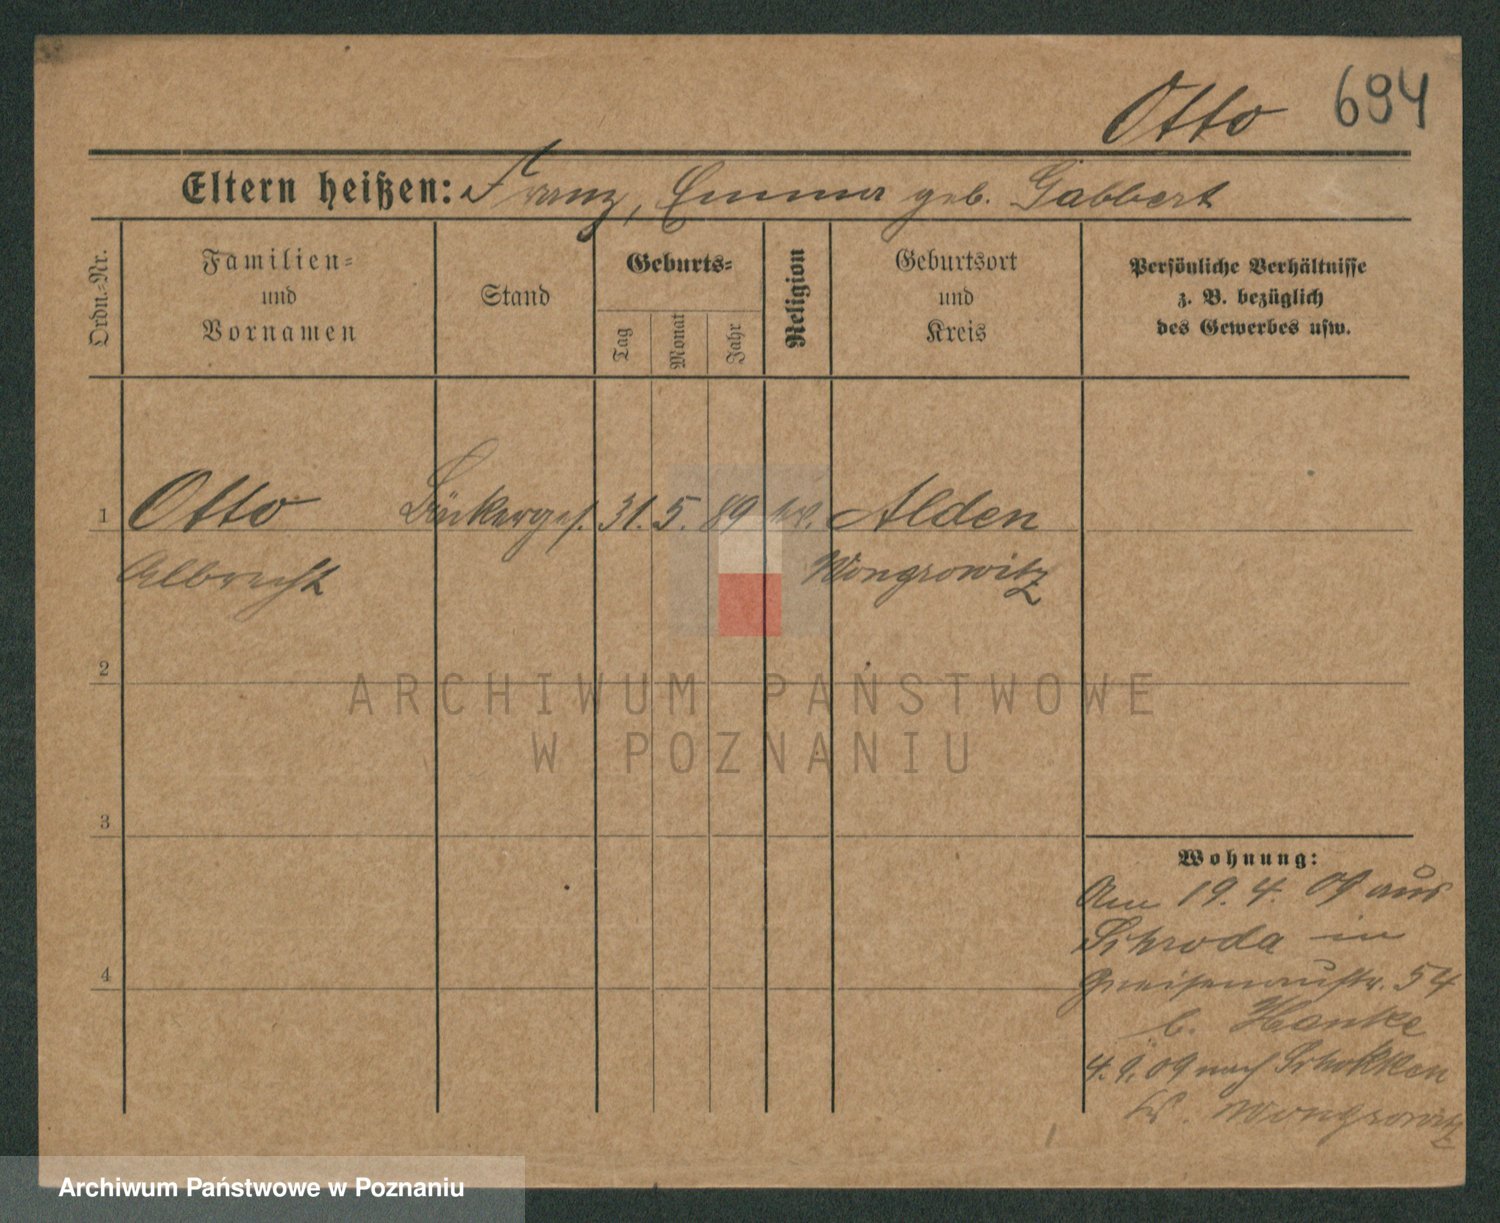 Otto 694
Eltern heißen: Franz, Emma geb. Gabbert
Ordn.-Nr.
Familien-
und
Vornamen
Stand
Geburts-
Tag
Monat
Jahr
Religion
Geburtsort
und
Kreis
Persönliche Verhältnisse
z. B. bezüglich
des Gewerbes usw.
1 Otto Bäckerges. 31. 5. 89 ev. Alden
Albrecht Wongrowitz
2
3
4
Wohnung:
Am 19. 4. 09 aus
Schroda in
Gneisenaustr. 54
b. Hanke
4. 9. 09 nach Schokken
Kr. Wongrowitz
ARCHIWUM PAŃSTWOWE
W POZNANIU
Archiwum Państwowe w Poznaniu